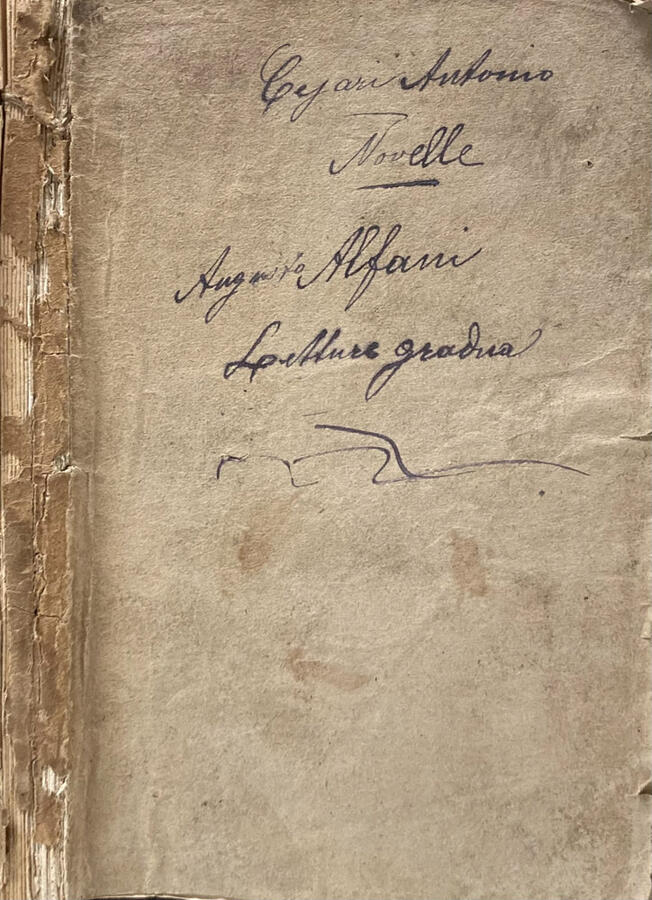 Cesari Antonio
Novelle
Augusto Alfani
Letture gradua